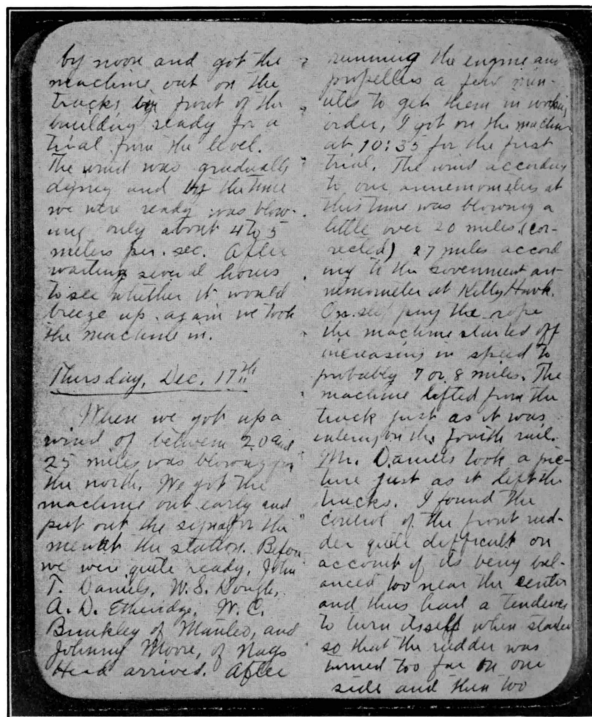 by noon and got the
machine out on the
tracks in front of the
building ready for a
trial from the level.
The wind was gradually
dying and by the time
we were ready was blow-
ing only about 4 to 5
meters per. sec. After
waiting several hours
to see whether it would
breeze up again we took
the machine in.
Thursday, Dec. 17th
When we got up a
wind of between 20 and
25 miles was blowing from
the north. We got the
machine out early and
put out the signal for the
men at the station. Before
we were quite ready, John
T. Daniels, W. S. Dough,
A. D. Etheridge, W. C.
Brinkley of Manteo, and
Johnny Moore, of Nags
Head arrived. After
running the engine and
propellers a few min-
utes to get them in working
order, I got on the machine
at 10:35 for the first
trial. The wind according
to our annemometers at
this time was blowing a
little over 20 miles (cor-
rected) 27 miles accord
ing to the Government an-
nemometer at Kitty Hawk.
On slipping the rope
the machine started off
increasing in speed to
probably 7 or 8 miles. The
machine lifted from the
track just as it was
entering on the fourth rail.
Mr. Daniels took a pic-
ture just as it left the
tracks. I found the
control of the front rud-
der quite difficult on
account of its being bal-
anced too near the center
and thus had a tendency
to turn itself when started
so that the rudder was
turned too far on one
side and then too